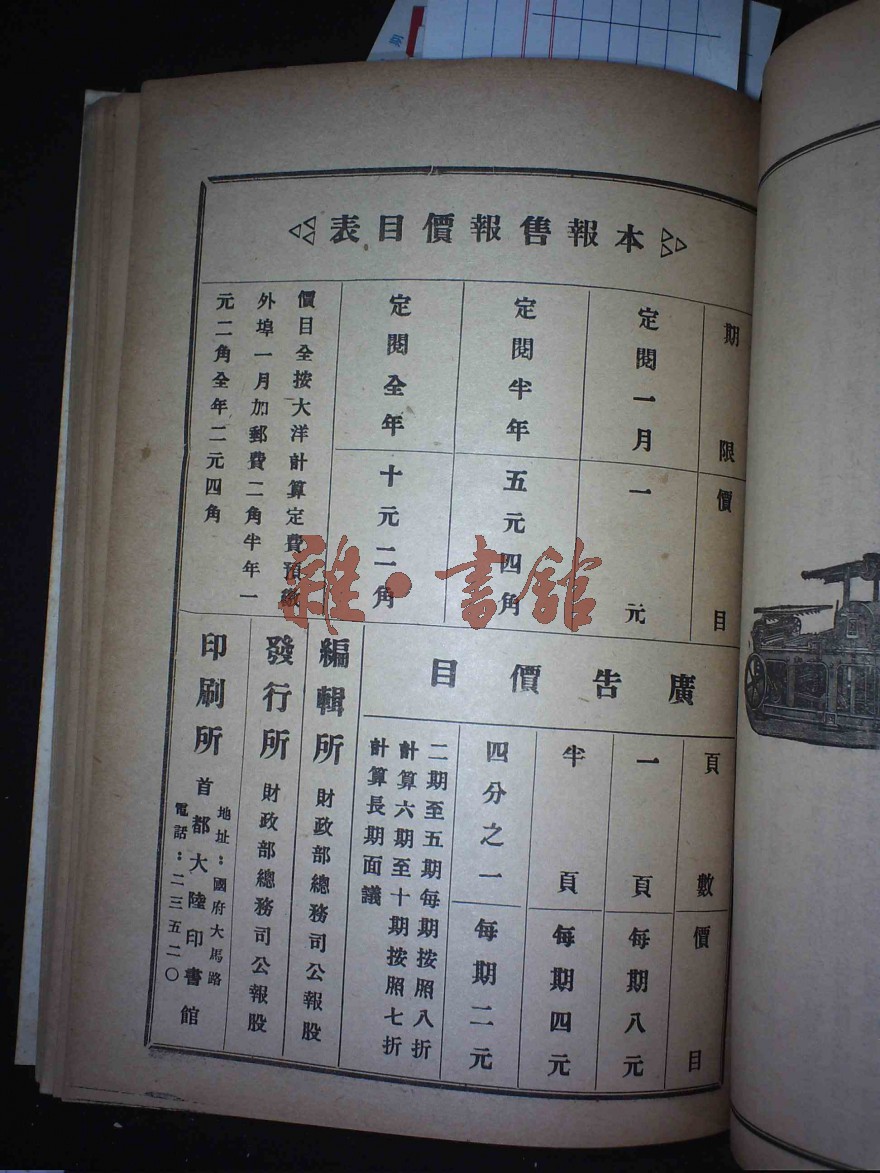 本報售報價目表
期限 價目
定閱一月 一元
定閱半年 五元四角
定閱全年 十元二角
價目全按大洋計算定費預繳
外埠一月加郵費二角半年一
元二角全年二元四角
廣告價目
頁數 價目
一頁 每期八元
半頁 每期四元
四分之一 每期二元
二期至五期每期按照八折
計算六期至十期按照七折
計算長期面議
編輯所 財政部總務司公報股
發行所 財政部總務司公報股
印刷所 首都大陸印書館
地址：國府大馬路
電話：二三五二〇
雜·書館